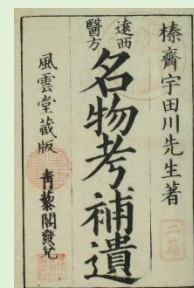 榛齋宇田川先生著
遠西
醫方
名物考補遺
風雲堂藏版
靑藜閣發兌
二篇